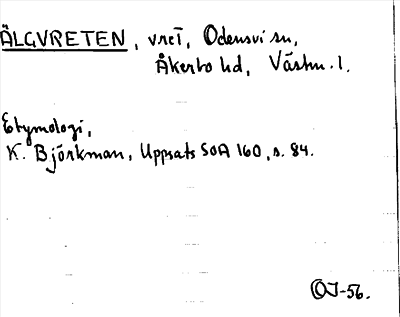 ÄLGVRETEN, vret, Odensvi sn,
Åkerbo hd, Västm. l.
Etymologi,
K. Björkman, Uppsats SOA 160, s. 84.
OJ-56.